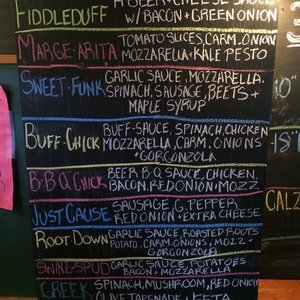 FIDDLEDUFF
BEER + CHEESE SAUCE
W/ BACON + GREEN ONION
MARGE·ARITA
TOMATO SLICES, CARM. ONION
MOZZARELLA + KALE PESTO
SWEET·FUNK
GARLIC SAUCE, MOZZARELLA,
SPINACH, SAUSAGE, BEETS +
MAPLE SYRUP
BUFF·CHICK
BUFF·SAUCE, SPINACH, CHICKEN
MOZZARELLA, CARM. ONIONS
+ GORGONZOLA
B·B·Q CHICK
BEER B·Q SAUCE, CHICKEN,
BACON, RED ONION + MOZZ
JUST CAUSE
SAUSAGE, G. PEPPER,
RED ONION + EXTRA CHEESE
ROOT DOWN
GARLIC SAUCE, ROASTED ROOTS
POTATO, CARM. ONIONS, MOZZ +
GORGONZOLA
SWINE·SPUD
GARLIC SAUCE POTATOES
BACON + MOZZARELLA
GREEK
SPINACH, MUSHROOM, RED ONION
OLIVE TAPENADE + FETA
CALZ